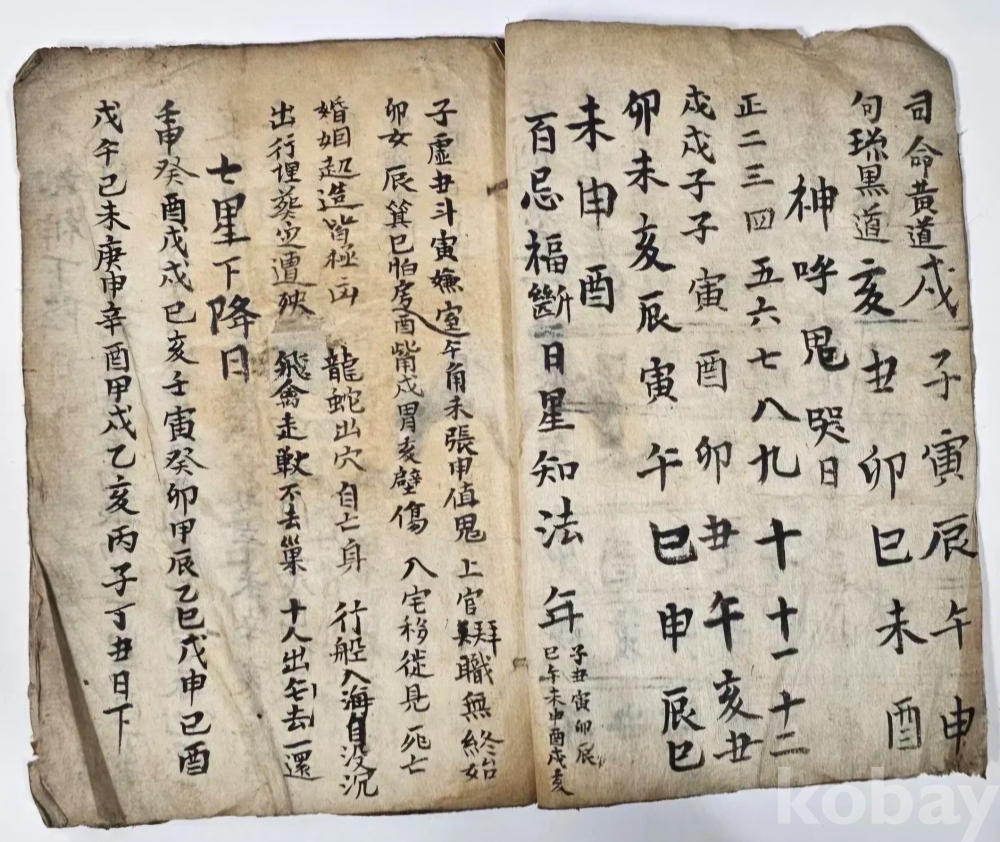 司命黃道 戌 子 寅 辰 午 申
句 黑道 亥 丑 卯 巳 未 酉
神呼鬼哭日
正二三四五六七八九十十一十二
戌戌子子寅酉卯丑午亥丑
卯未亥辰寅午巳申辰巳
未申酉
百忌福斷日星知法 年 子丑寅卯辰
巳午未申酉戌亥
子虛丑斗寅嫌室午角未張甲值鬼 上官 職無終始
卯女辰箕巳怕房酉觜戌胃亥壁傷 入宅移徙見死亡
婚姻起造皆極凶 龍蛇出穴自亡身 行船入海自没沉
出行埋葬定遭殃 飛禽走獸不去巢 十人出去一還
七星下降日
壬申癸酉戊戌巳亥壬寅癸卯甲辰乙巳戊申己酉
戊午己未庚申辛酉甲戌乙亥丙子丁丑日下
kobay